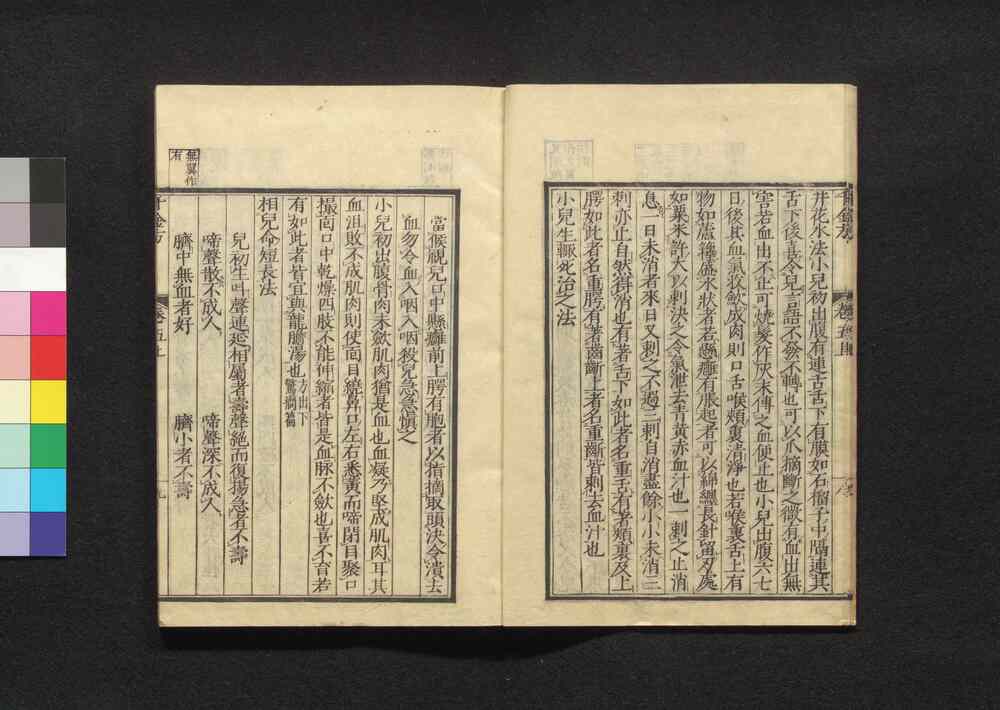 井花水法小兒初出腹有連舌舌下有膜如石榴子中隔連其
舌下後喜令兒言語不發不轉也可以爪摘斷之微有血出無
害若血出不止可燒髮作灰末傅之血便止也小兒出腹六七
日後其血氣收斂成肉則口舌喉頰裏清淨也若喉裏舌上有
物如蘆籜盛水狀者若懸癰有脹起者可以綿纏長針留刃處
如粟米許大以刺決之令氣泄去青黃赤血汁也一刺之止消
息一日未消者來日又刺之不過三刺自消盡餘小小未消三
刺亦止自然得消也有著舌下如此者名重舌有著頰裏及上
腭如此者名重腭有著齒齗上者名重齗皆刺去血汁也
小兒生輒死治之法
當候視兒口中懸癰前上腭有胞者以指摘取頭決令潰去
血勿令血入咽入咽殺兒急急慎之
小兒初出腹骨肉未斂肌肉猶是血也血凝乃堅成肌肉耳其
血沮敗不成肌肉則使面目繞鼻口左右悉黃而啼閉目聚口
撮面口中乾燥四肢不能伸縮者皆是血脉不斂也喜不育若
有如此者皆宜與龍膽湯也方出下驚癇篇
相兒命短長法
兒初生叫聲連延相屬者壽聲絕而復揚急者不壽
啼聲散不成人 啼聲深不成人
臍中無血者好 臍小者不壽
無翼作有
千金方 卷五上 九